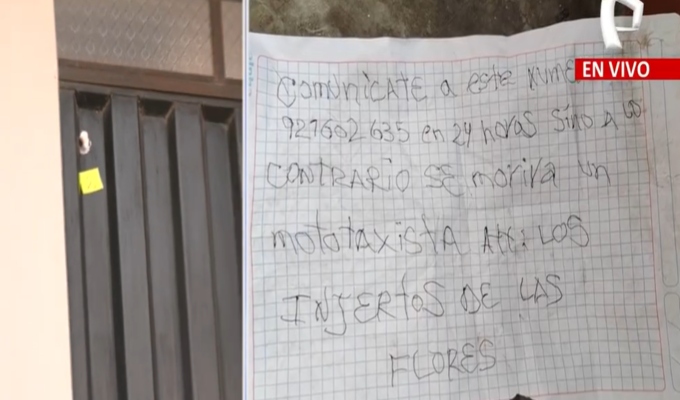 EN VIVO
COMUNICATE a este NUME
921602635 en 24 horas sino A lo
CONTRARIO SE morira un
mototaxistA Att: LOS
INJERtoS DE LAS
FLORES